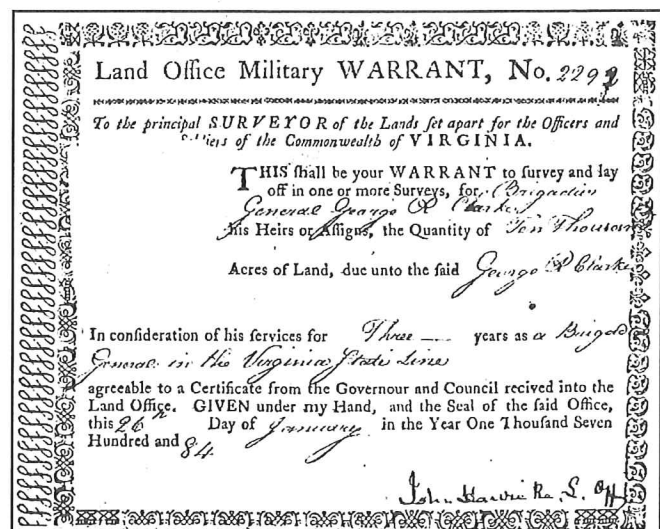 Land Office Military WARRANT, No. 2292
To the principal SURVEYOR of the Lands set apart for the Officers and
Soldiers of the Commonwealth of VIRGINIA.
THIS shall be your WARRANT to survey and lay
off in one or more Surveys, for Brigadier
General George R Clarke
his Heirs or Assigns, the Quantity of Ten Thousan
Acres of Land, due unto the said George R Clarke
In consideration of his services for Three — years as a Brigd
General in the Virginia State Line
agreeable to a Certificate from the Governour and Council recived into the
Land Office. GIVEN under my Hand, and the Seal of the said Office,
this 26th Day of January in the Year One Thousand Seven
Hundred and 84
John Harvie Re. L. Off